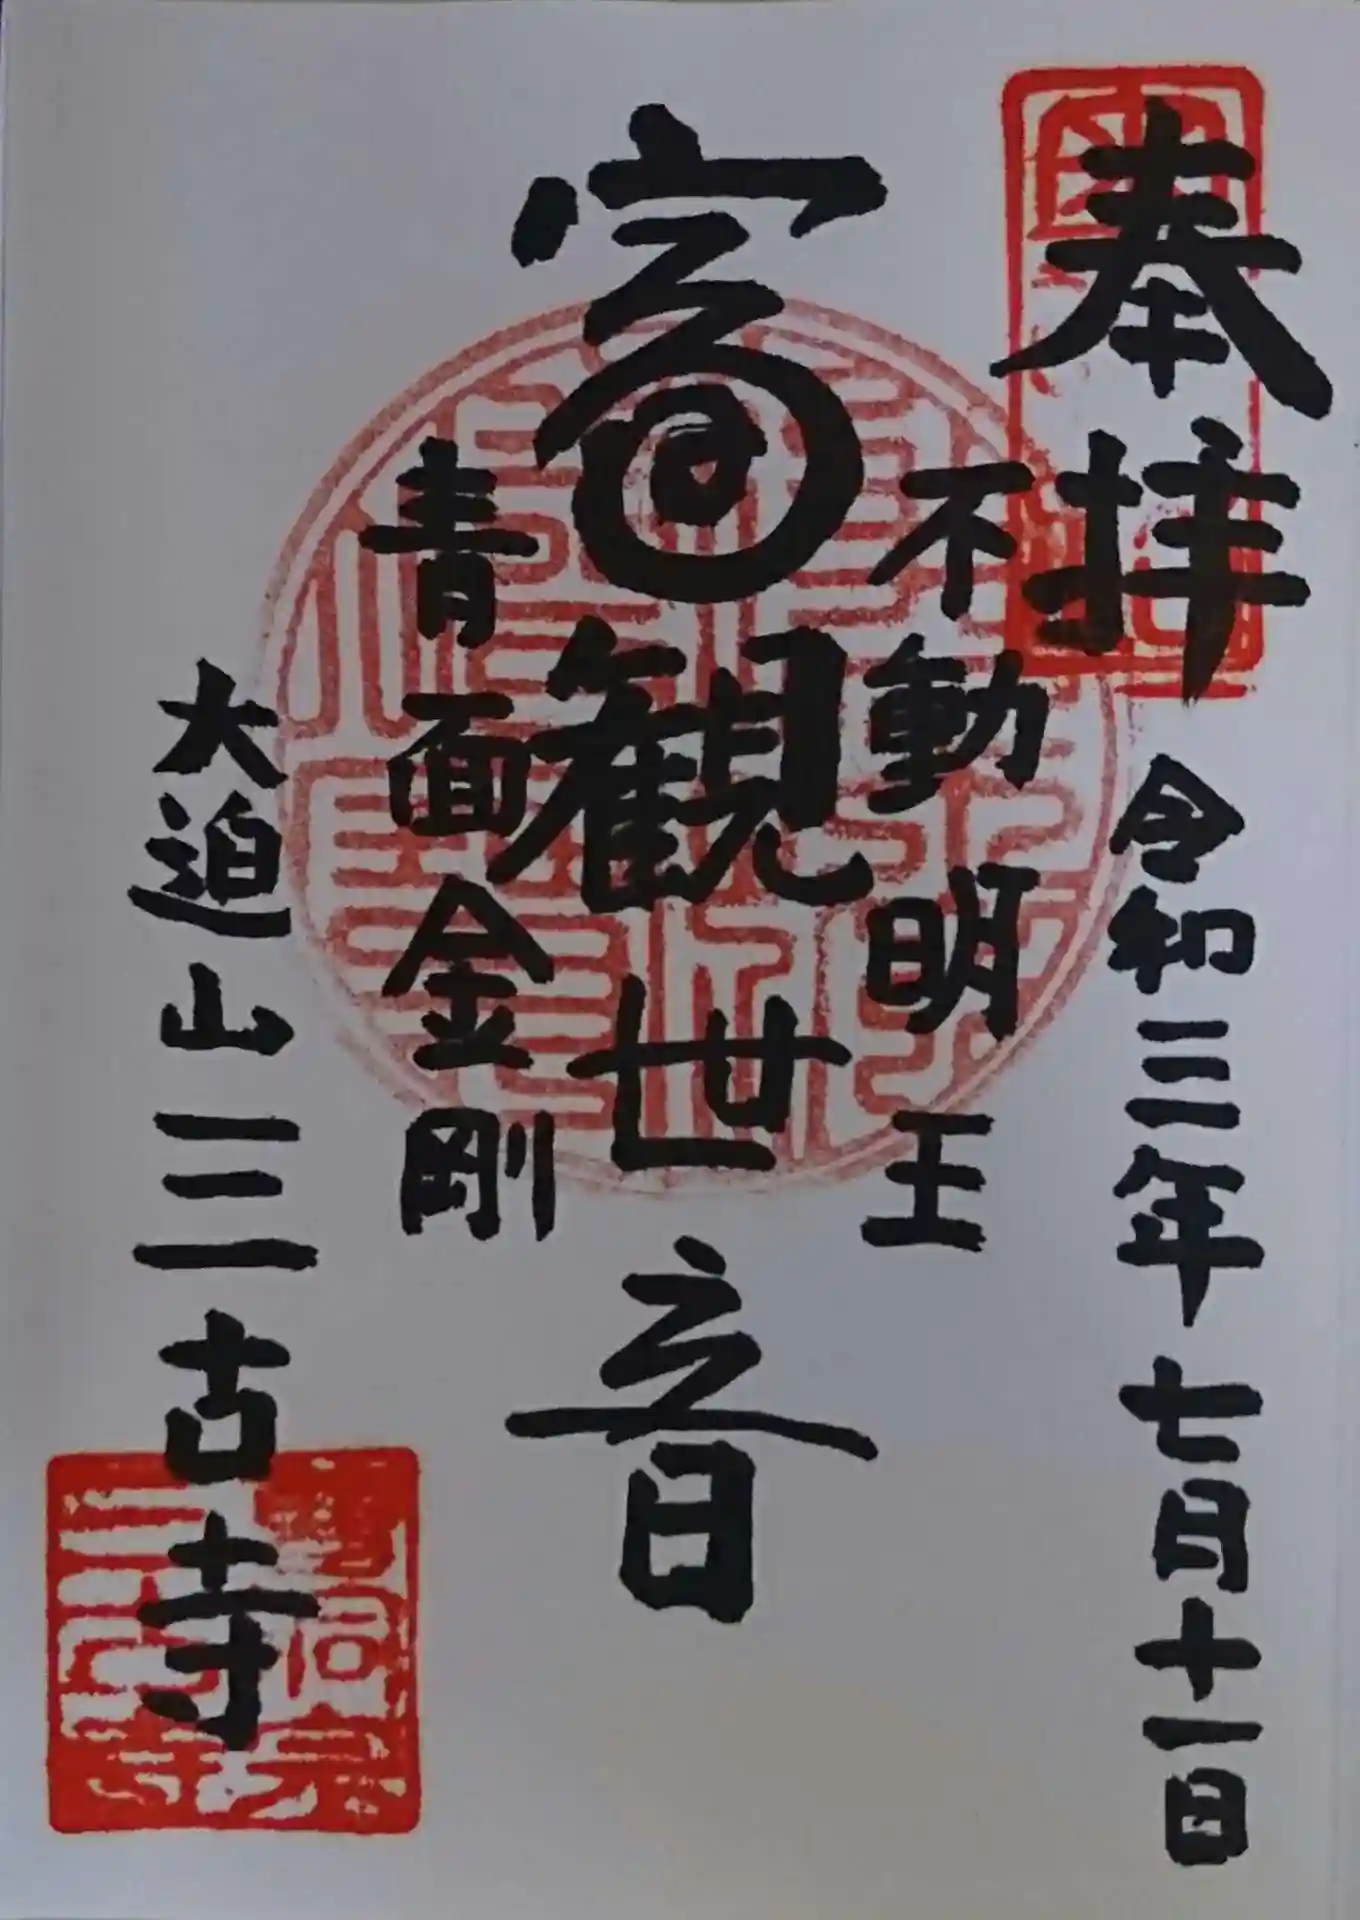 奉拝
令和三年七月十一日
不動明王
観世音
青面金剛
大迫山三古寺